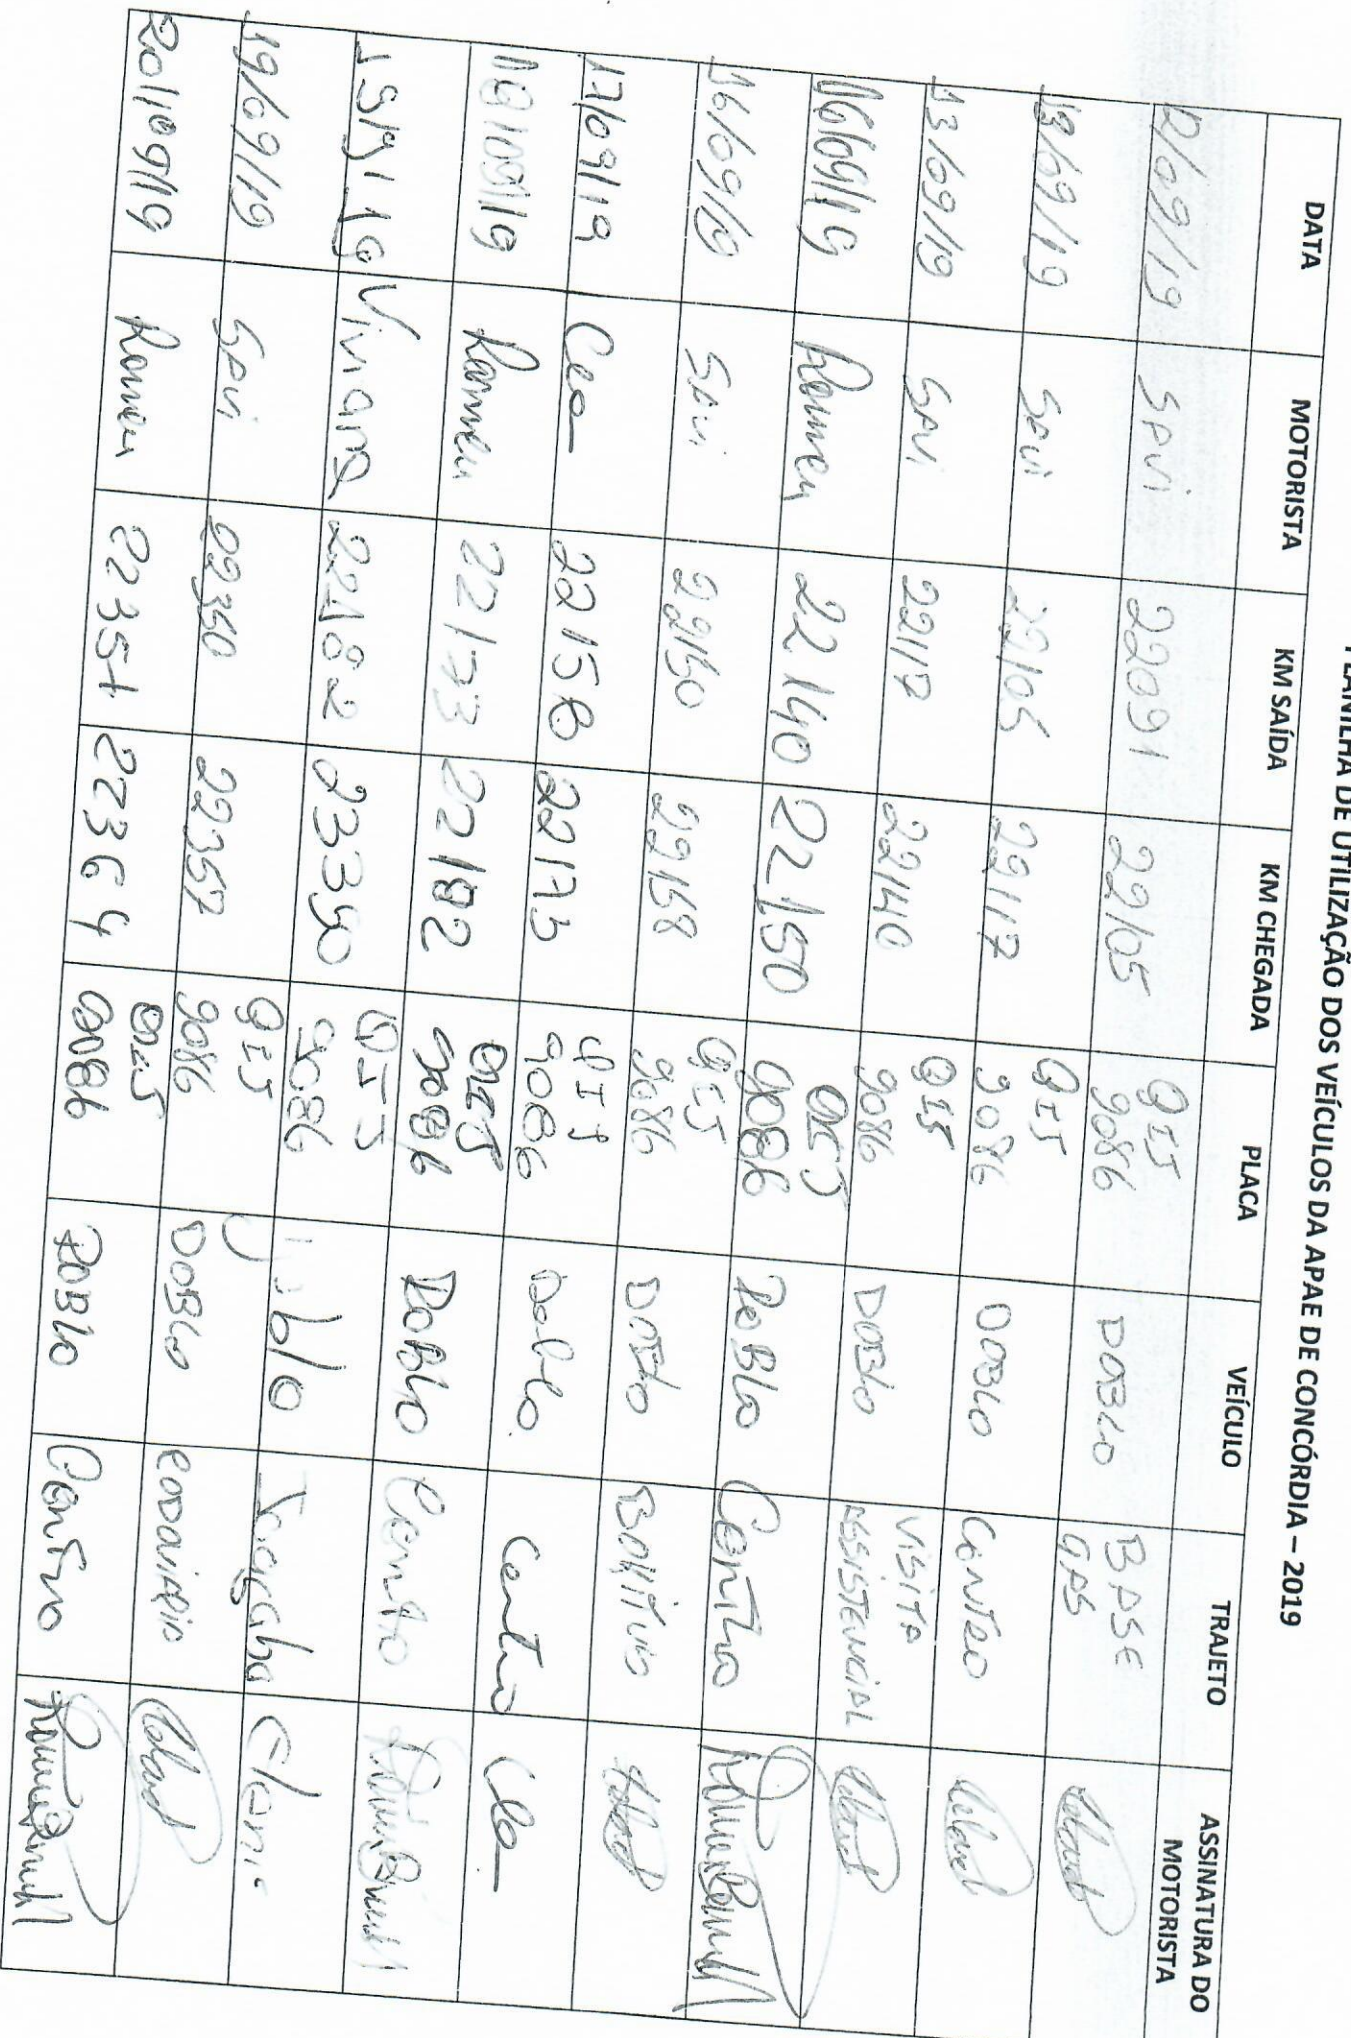 PLANILHA DE UTILIZAÇÃO DOS VEÍCULOS DA APAE DE CONCÓRDIA – 2019
DATA MOTORISTA KM SAÍDA KM CHEGADA PLACA VEÍCULO TRAJETO ASSINATURA DO MOTORISTA
12/09/19 SAVI 22091 22105 QIJ 9086 DOBLO BASE GAS
13/09/19 SAVI 22105 22117 QIJ 9086 DOBLO CONTRO
13/09/19 SAVI 22117 22140 QIJ 9086 DOBLO VISITA ASSISTENCIAL
16/09/19 Romeu 22140 22150 QIJ 9086 DOBLO Centro
16/09/19 SAVI 22150 22158 QIJ 9086 DOBLO
17/09/19 Cleo 22158 22173 QIJ 9086 Doblo Centro Cleo
18/09/19 Romeu 22173 22182 QIJ 9086 DOBLO Centro
Viviane 22182 23350 QIJ 9086 Doblo Joaçaba
19/09/19 SAVI 22350 22357 QIJ 9086 DOBLO
20/09/19 Romeu 22357 22364 QIJ 9086 DOBLO Centro